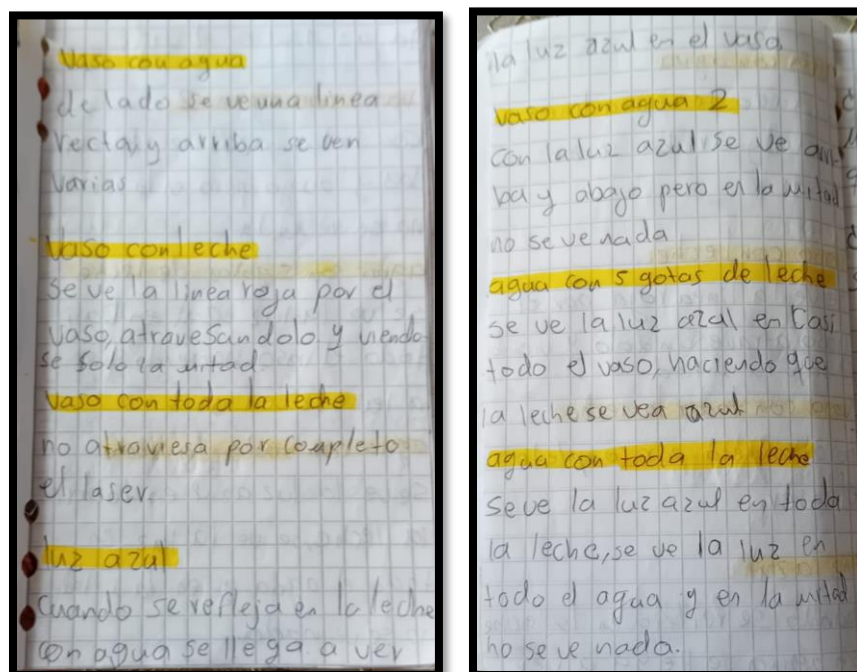 vaso con agua
de lado se ve una linea
recta y arriba se ven
varias
vaso con leche
se ve la linea roja por el
vaso, atravesandolo y viendo
se solo la mitad
vaso con toda la leche
no atraviesa por completo
el laser
luz azul
cuando se refleja en la leche
con agua se llega a ver
la luz azul en el vaso
vaso con agua 2
con la luz azul se ve arri-
ba y abajo pero en la mitad
no se ve nada
agua con 5 gotas de leche
se ve la luz azul en casi
todo el vaso, haciendo que
la leche se vea azul
agua con toda la leche
se ve la luz azul en toda
la leche, se ve la luz en
todo el agua y en la mitad
no se ve nada.